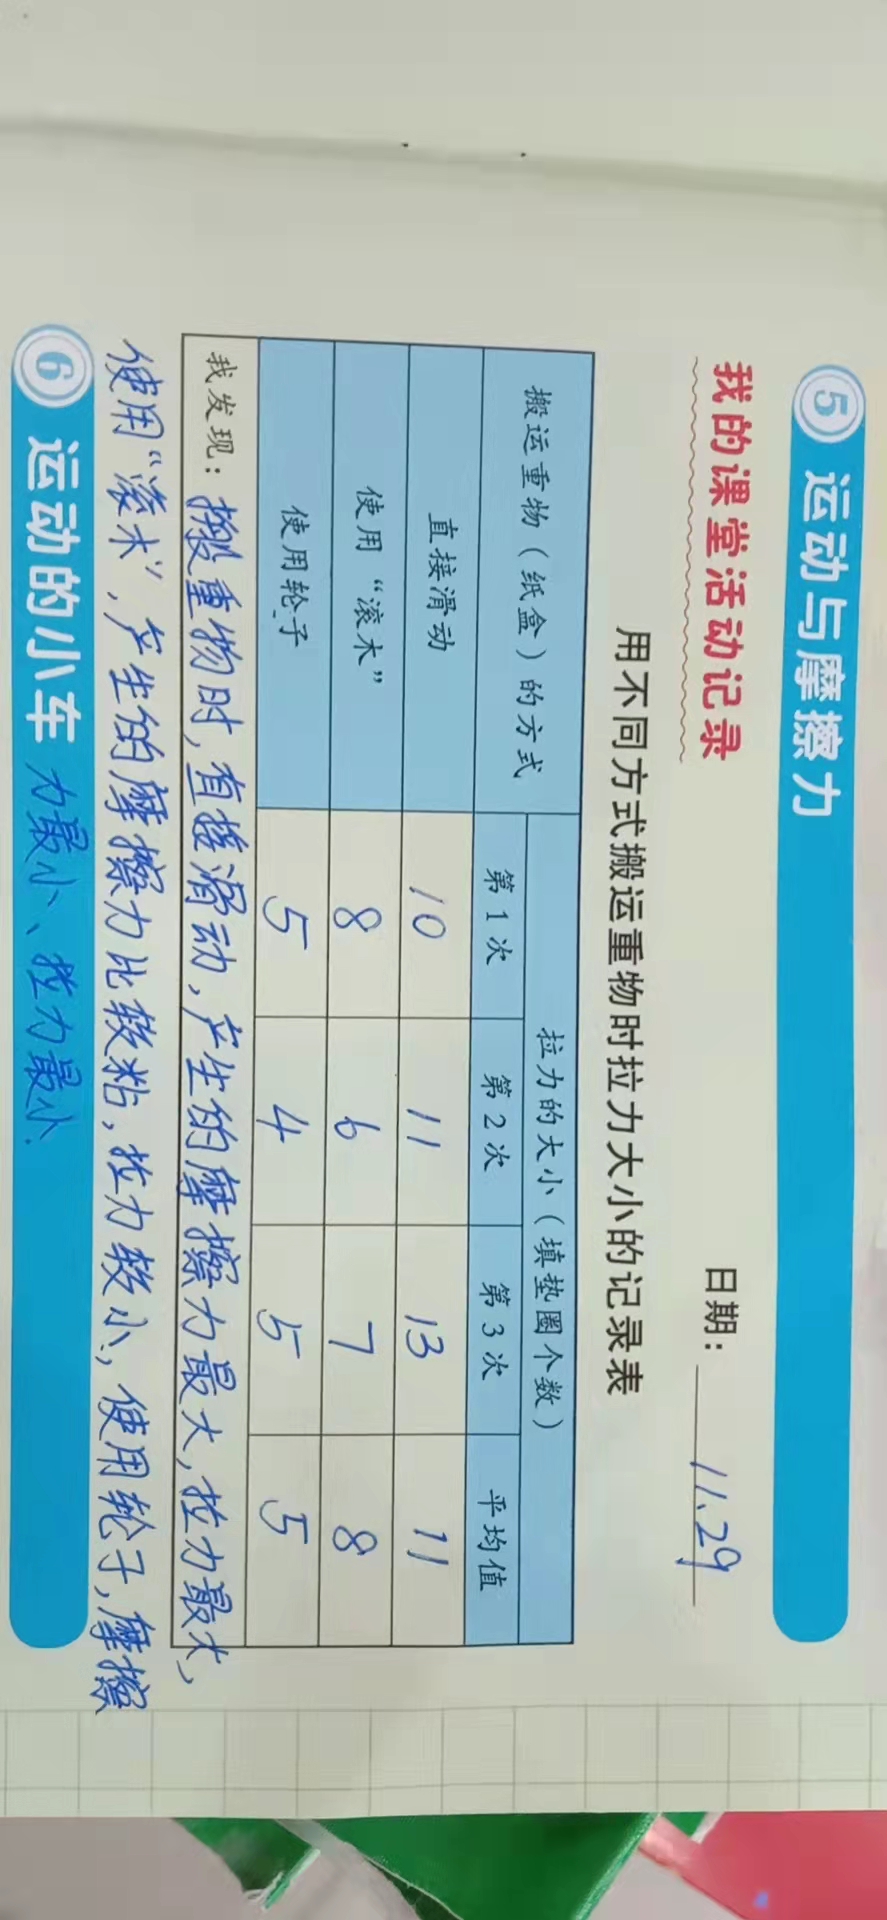 5 运动与摩擦力
我的课堂活动记录 日期：11.29
用不同方式搬运重物时拉力大小的记录表
搬运重物（纸盒）的方式 拉力的大小（填垫圈个数）
第1次 第2次 第3次 平均值
直接滑动 10 11 13 11
使用“滚木” 8 6 7 8
使用轮子 5 4 5 5
我发现：搬重物时，直接滑动，产生的摩擦力最大，拉力最大，
使用“滚木”，产生的摩擦力比较粘，拉力较小，使用轮子，摩擦
6 运动的小车 力最小、拉力最小.